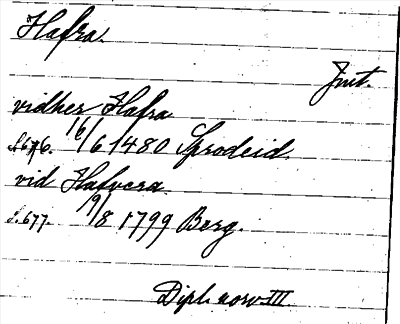 Hafra.
Jmt.
vidher Hafra
s. 676. 16/6 1480 Sprodeid.
vid Hafvera
s. 677. 19/8 1799 Berg.
Dipl. norv. III